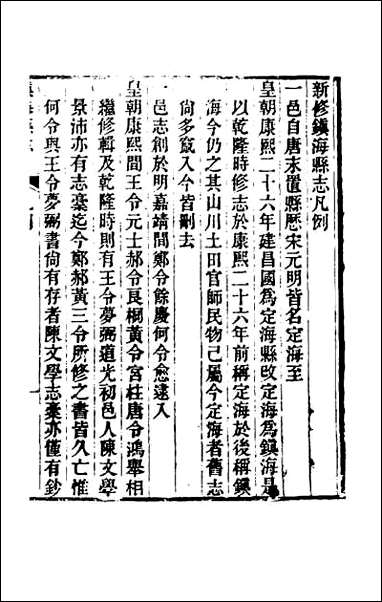 新修鎮海縣志凡例
一邑自唐末置縣歷宋元明皆名定海至
皇朝康熙二十六年建昌國爲定海縣改定海爲鎮海是
以乾隆時修志於康熙二十六年前稱定海於後稱鎮
海今仍之其山川土田官師民物已屬今定海者舊志
尙多竄入今皆刪去
一邑志創於明嘉靖間鄭令餘慶何令愈逮入
皇朝康熙間王令元士郝令良桐黃令宮柱唐令鴻舉相
繼修輯及乾隆時則有王令夢弼道光初邑人陳文學
景沛亦有志稾迄今鄭郝黃三令所修之書皆久亡惟
何令與王令夢弼書尙有存者陳文學志稾亦僅有鈔